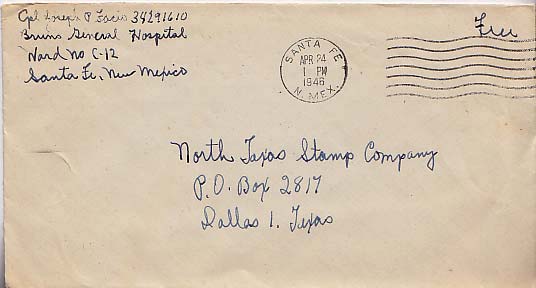 Cpl Joseph P 34291610
Bruns General Hospital
Ward No C-12
Santa Fe, New Mexico
Free
SANTA FE
APR 24
1 PM
1946
N. MEX.
North Texas Stamp Company
P.O. Box 2817
Dallas 1, Texas